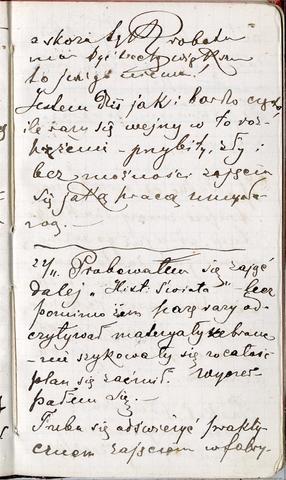 a skoro tyle robota
ma być trochę większa
to
Jestem dziś jak i bardzo często
ile razy się wojny w to roz-
- przybity, zły i
bez możności zajęcia
się jaką pracą umysło-
wą. -
22/11. Próbowałem się zająć
dalej „Hist. Świata" - lecz
pomimo żem parę razy od-
czytywał materyały zebrane
- nie szykowały się w całość
plan się zaćmił. Wyczer-
pałem się. -
Trzeba się odświeżyć prakty-
cznem zajęciem w fabry-